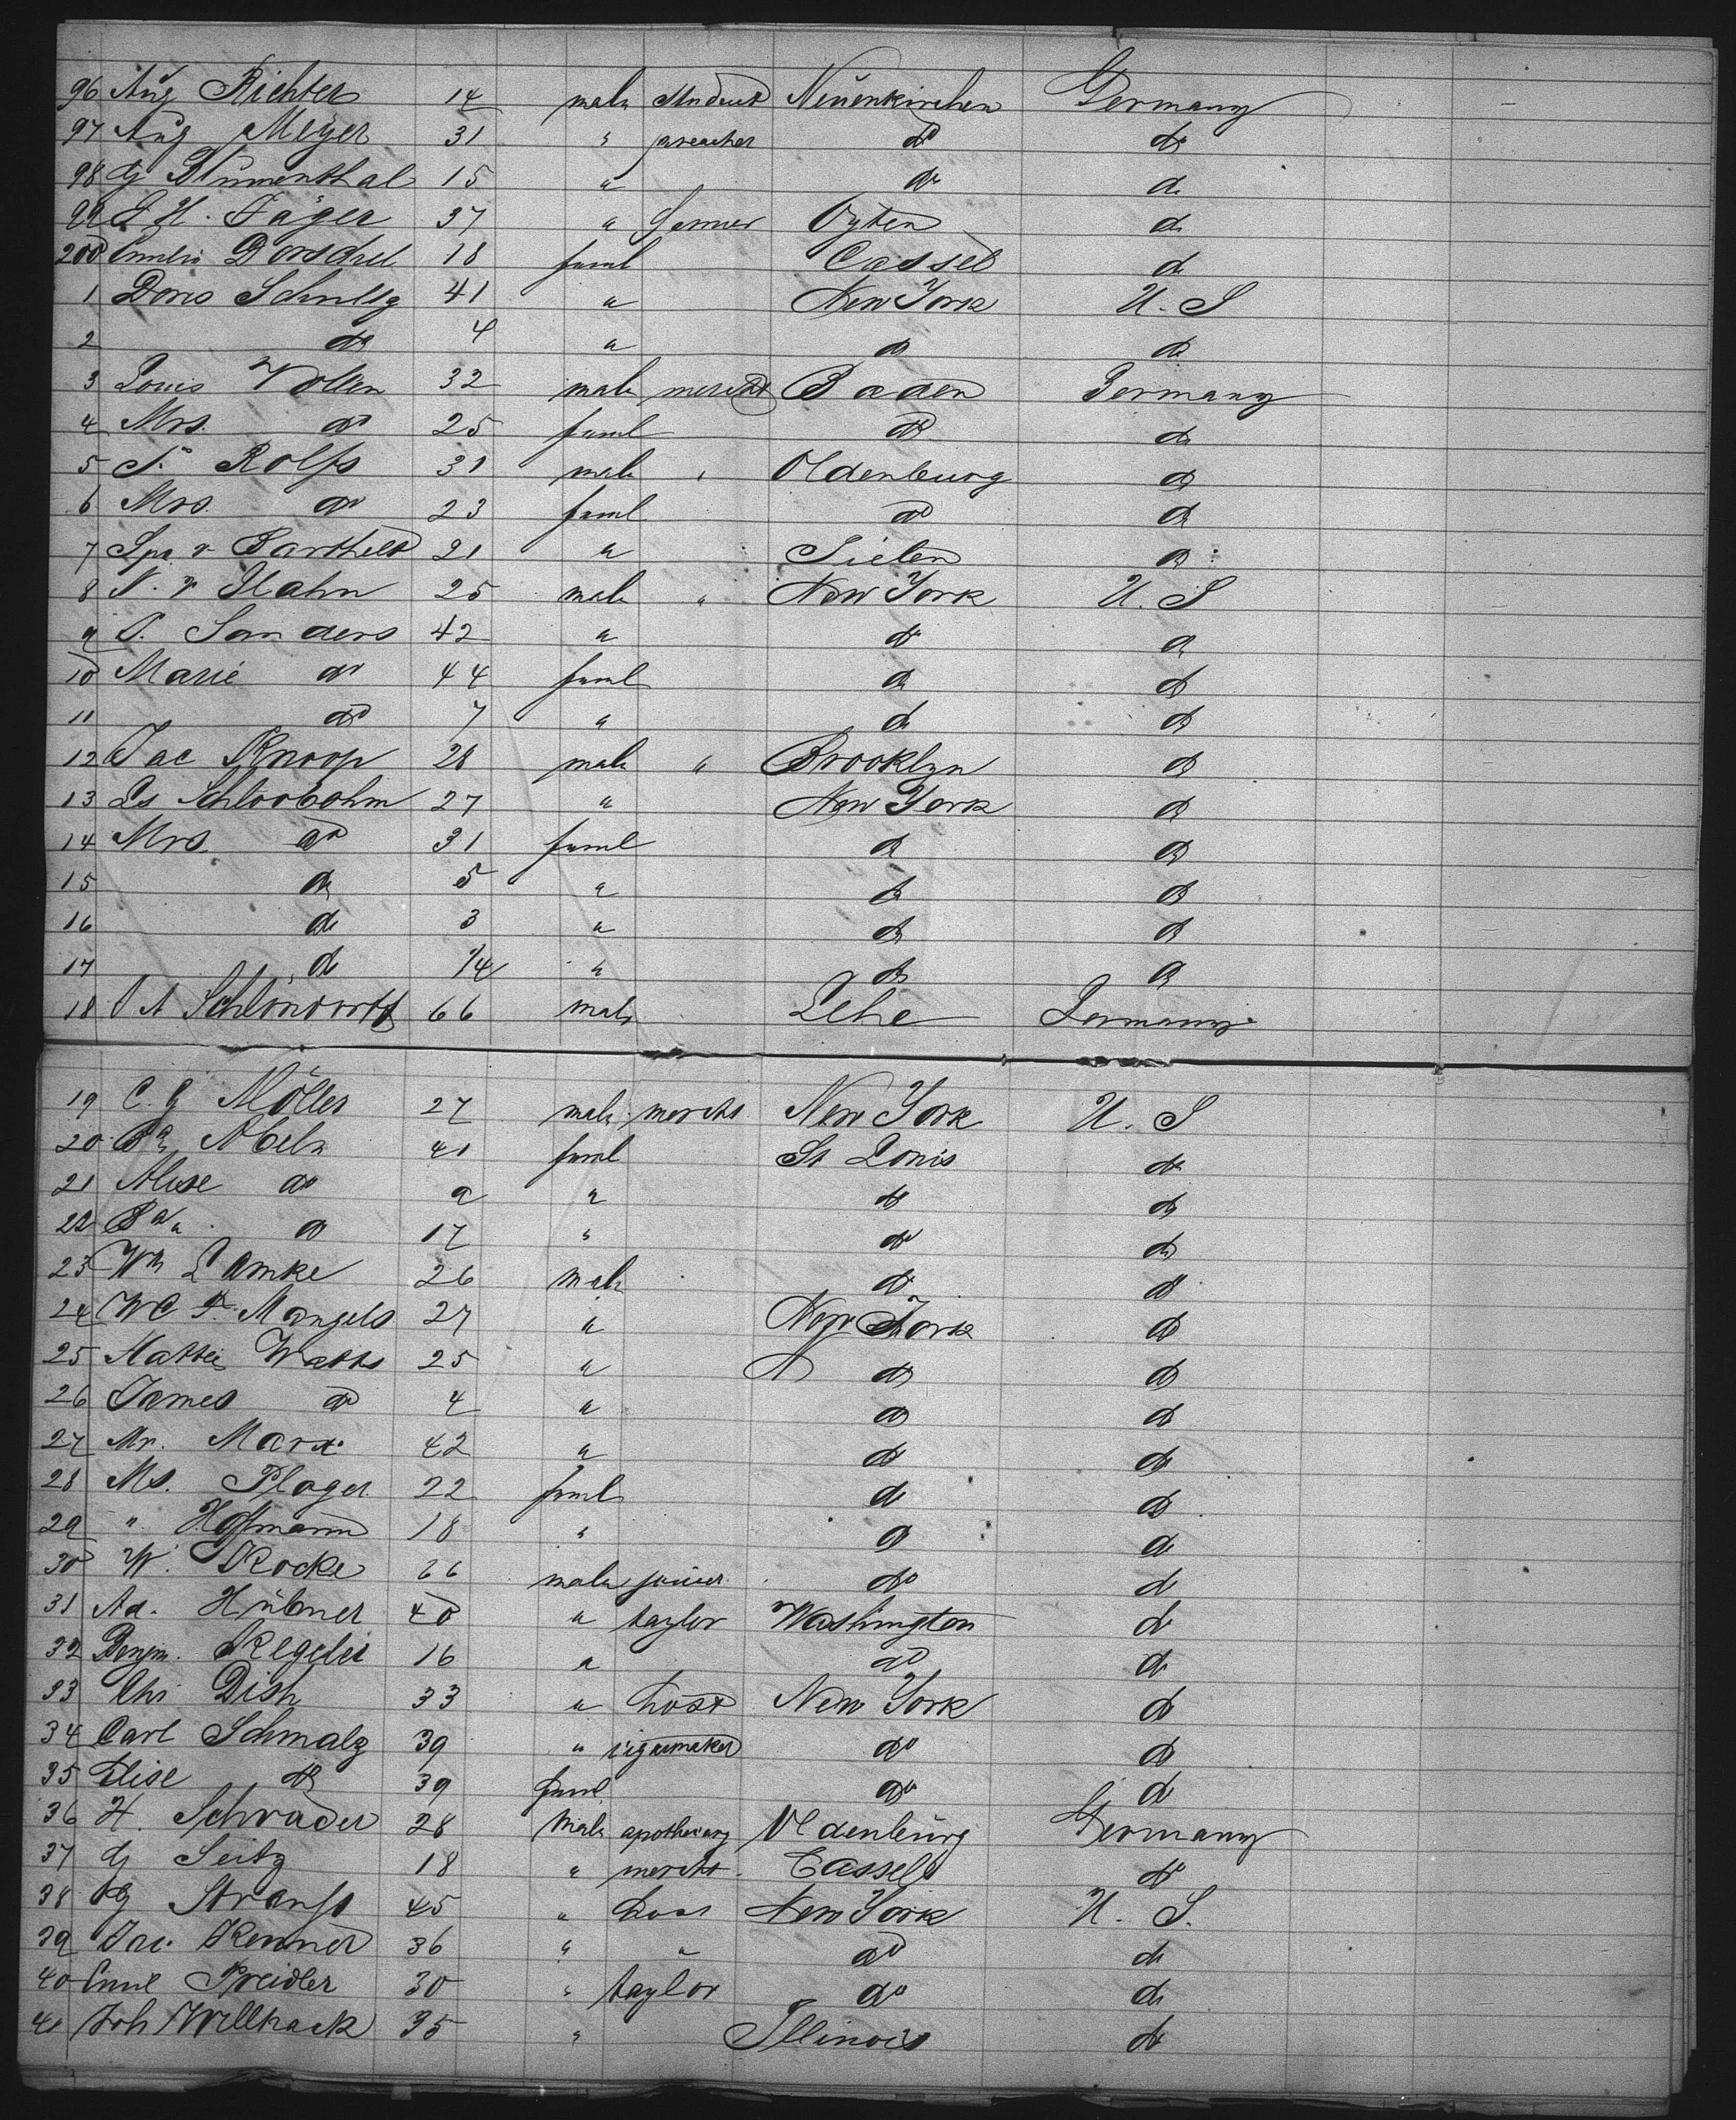 96 Aug Richter 14 male Student Neuenkirchen Germany
97 Aug Meyer 31 " preacher do do
98 G Blumenthal 15 " do do
99 J H. Jäger 37 " farmer Oyten do
200 Emilie Dorschel 18 feml Cassel do
1 Doris Schultz 41 " New York U. S
2 do 4 " do do
3 Louis Wolken 32 male mercht Baden Germany
4 Mrs. do 25 feml do do
5 Rolfs 31 male " Oldenburg do
6 Mrs. do 23 feml do do
7 v Bartheld 21 " Sielen do
8 N. v Stahn 25 male " New York U. S
9 P. Sanders 42 " do do
10 Marie do 44 feml do do
11 do 7 " do do
12 Jac Knoop 28 male " Brooklyn do
13 Ls Schloobohm 27 " New York do
14 Mrs do 31 feml do do
15 do 5 " do do
16 do 3 " do do
17 do 1/4 " do do
18 Schlöndorff 66 male Lehe Germany
19 C. G Möller 27 male mercht New York U. S
20 Ba Abeln 41 feml St Louis do
21 Alise do 9 " do do
22 Ba do 17 " do do
23 Wm Lamke 26 male do do
24 W C F. Mangels 27 " New York do
25 Hattie Watts 25 " do do
26 James do 4 " do do
27 Mr. Marx 42 " do do
28 Ms. Plager 22 feml do do
29 " Hoffmann 18 " do do
30 W. Kocke 66 male joiner do do
31 Ad. Hübner 40 " taylor Washington do
32 Benjm. Kegeler 16 " do do
33 Chr Dish 33 " host New York do
34 Carl Schmalz 39 " cigarmaker do do
35 Elise do 39 feml do do
36 H. Schrader 28 male apothecary Oldenburg Germany
37 G Seitz 18 " mercht. Cassel do
38 G Strauss 45 " host New York U. S.
39 Jac. Renner 36 " " do do
40 Emil Preidler 30 " taylor do do
41 Joh Willhack 35 " Illinois do